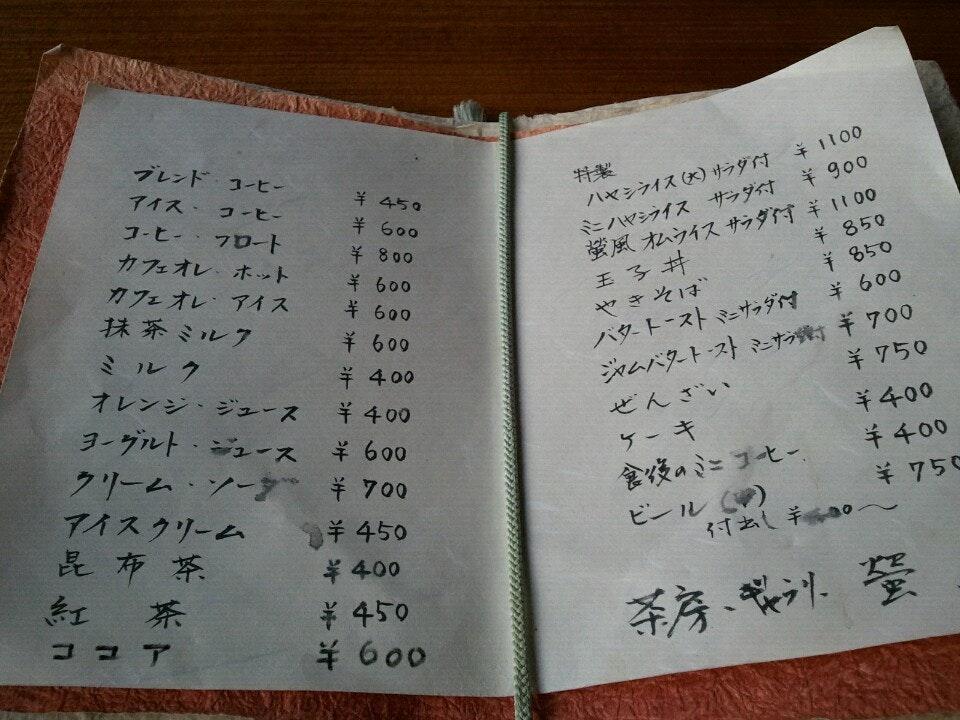 ブレンド・コーヒー ¥450
アイス・コーヒー ¥600
コーヒー・フロート ¥800
カフェオレ・ホット ¥600
カフェオレ・アイス ¥600
抹茶ミルク ¥600
ミルク ¥400
オレンジ・ジュース ¥400
ヨーグルト・ジュース ¥600
クリーム・ソーダ ¥700
アイスクリーム ¥450
昆布茶 ¥400
紅茶 ¥450
ココア ¥600
特製
ハヤシライス(大)サラダ付 ¥1100
ミニハヤシライス サラダ付 ¥900
螢風オムライス サラダ付 ¥1100
玉子丼 ¥850
やきそば ¥850
バタートースト ミニサラダ付 ¥600
ジャムバタートースト ミニサラダ付 ¥700
ぜんざい ¥750
ケーキ ¥400
食後のミニコーヒー ¥400
ビール ¥750
付出し ¥
茶房・ギャラリー 螢